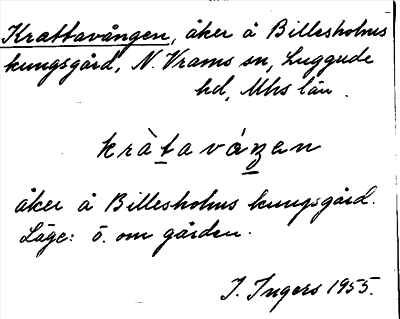 Krattavången, åker å Billesholms
kungsgård, N. Vrams sn, Luggude
hd, Mhs län.
kràtaváŋen
åker å Billesholms kungsgård.
Läge: ö. om gården.
I. Ingers 1955.